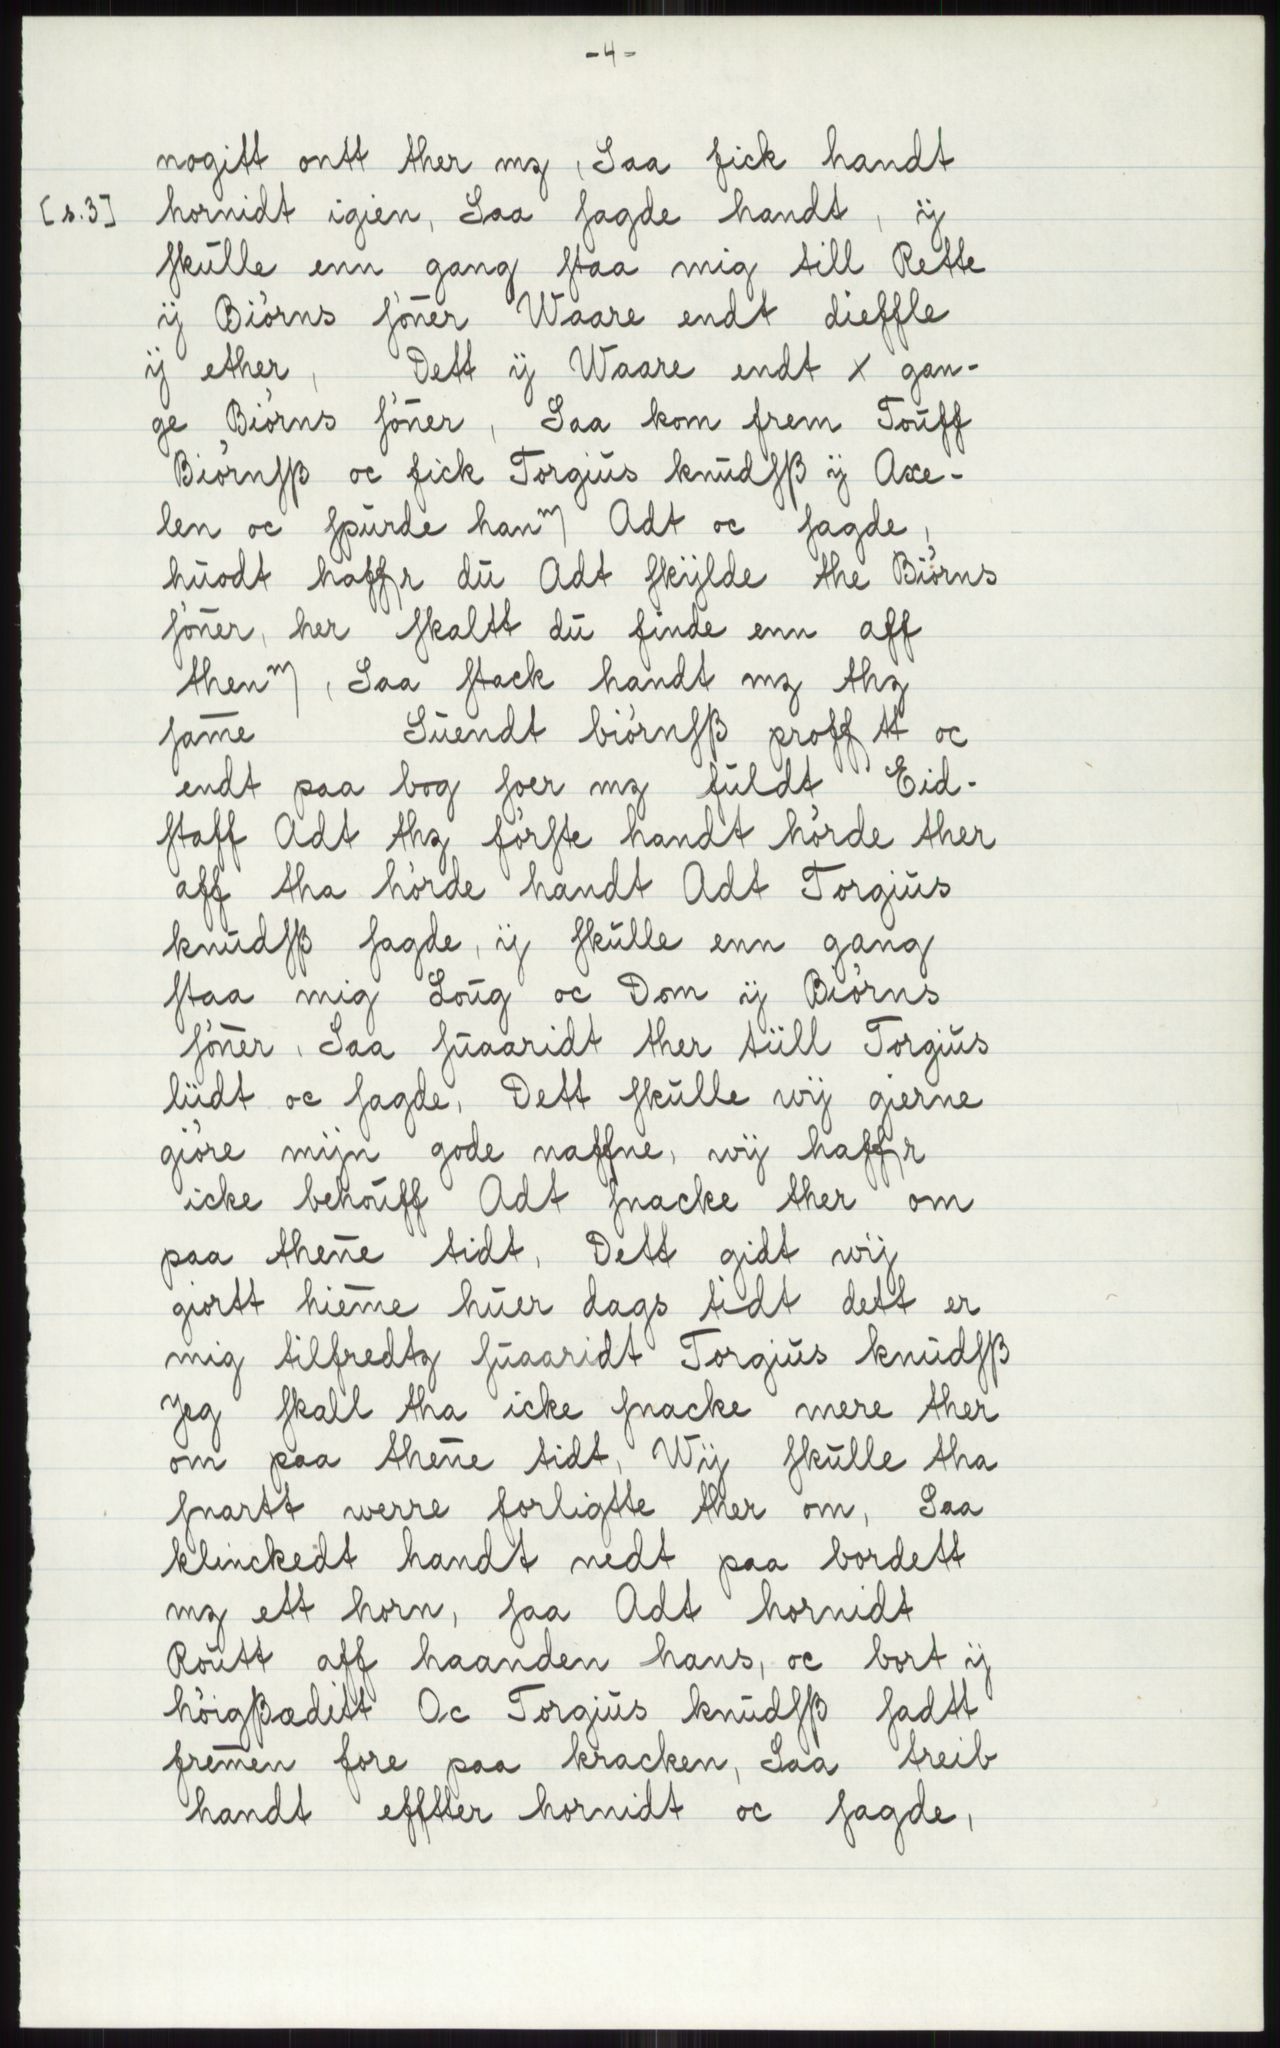 -4-
nogitt ontt ther mz, Saa fick handt
[s.3] hornidt igien, Saa sagde handt, ÿ
skulle enn gang staa mig till Rette
ÿ Biórns sóner Waare endt dieffle
ÿ ether, Dett ÿ Waare endt x gan-
ge Biórns sóner, Saa kom frem Toūff
Biórnsß oc fick Torgiūs knūdsß ÿ Axe-
len oc spūrde hanm Adt oc sagde,
hūodt haffr dū Adt skÿlde the Biórns
sóner, her skaltt dū finde enn aff
thenm, Saa stack handt mz thz
sam̄e Sūendt biórnsß proff tt oc
endt paa bog soer mz fūldt Eid-
staff Adt thz fórste handt hórde ther
aff tha hórde handt Adt Torgiūs
knūdsß sagde, ÿ skūlle enn gang
staa mig Loūg oc Dom ÿ Biórns
són̄er, Saa sūaaridt ther tüll Torgiūs
lüdt oc sagde, Dett skūlle wÿ gierne
gióre mÿn gode naffne, wÿ haffr
icke behoūff Adt snacke ther om
paa then̄e tidt, Dett gidt wÿ
giortt hiem̄e hūer dags tidt dett er
mig tilfredtz sūaaridt Torgiūs knūdsß
Jeg skall tha icke snacke mere ther
om paa then̄e tidt, Wÿ skūlle tha
snartt werre forligtte ther om, Saa
klinckedt handt nedt paa bordett
mz ett horn, saa Adt hornidt
Roūtt aff haanden hans, oc bort ÿ
hóigßæditt Oc Torgiūs knūdsß sadtt
frem̄en fore paa kracken, Saa treib
handt efftter hornidt oc sagde,